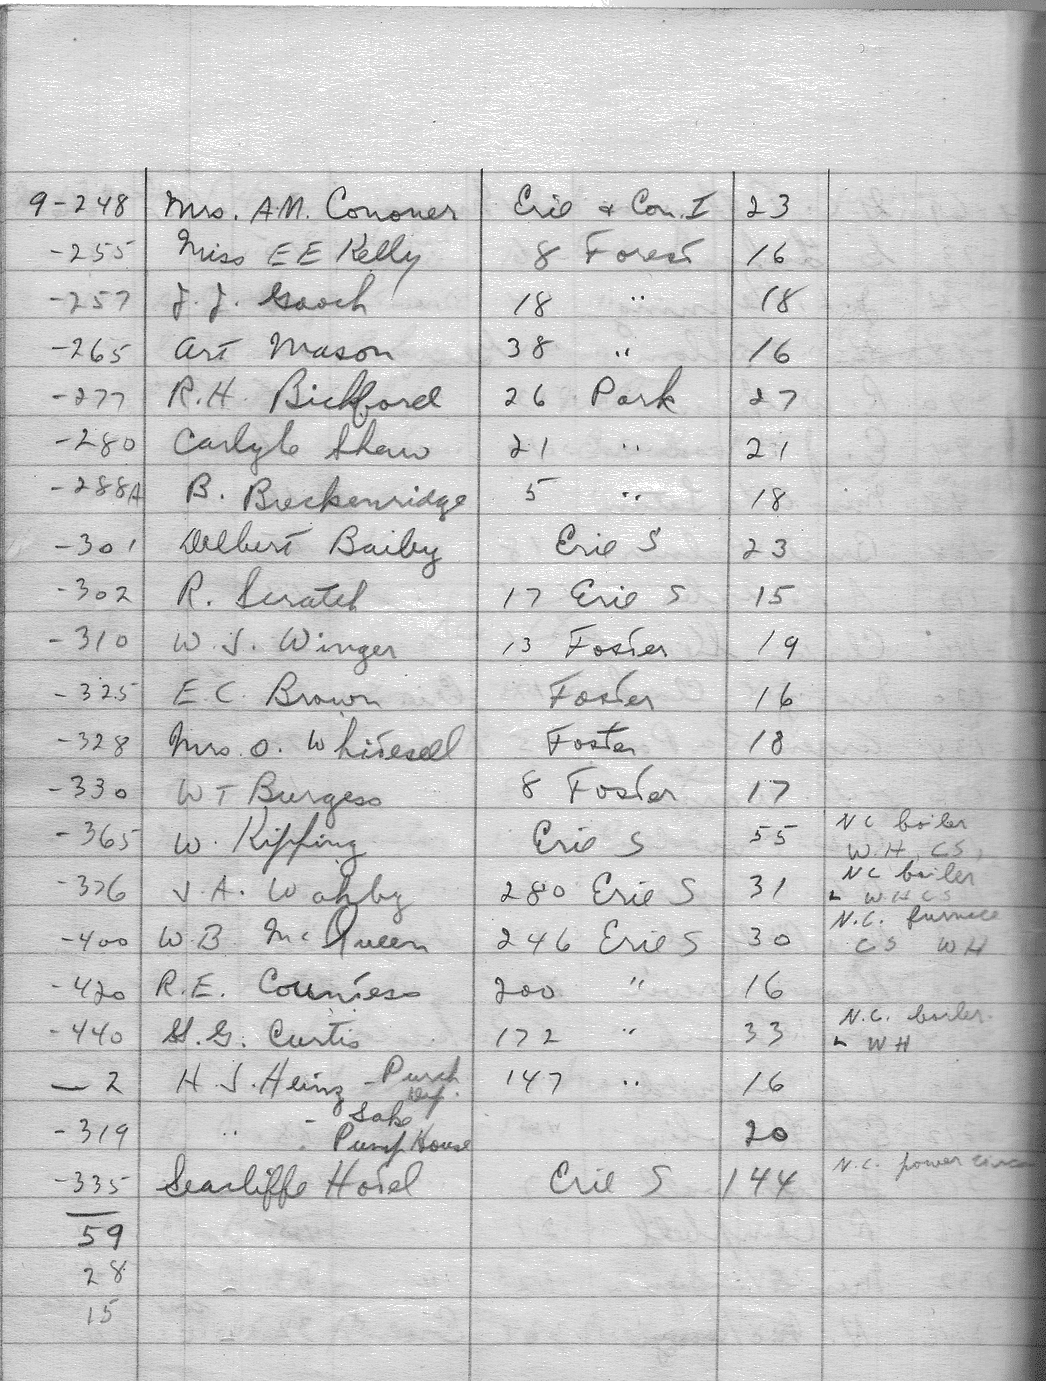 9-248 Mrs. A.M. Cononer Erie & Con. I 23
-255 Miss E E Kelly 8 Forest 16
-257 J. J. Gooch 18 " 18
-265 Art Mason 38 " 16
-277 R.H. Bickford 26 Park 27
-280 Carlyle Shaw 21 " 21
-288A B. Breckenridge 5 " 18
-301 Delbert Bailey Erie S 23
-302 R. Scratch 17 Erie S 15
-310 W. J. Winger 13 Foster 19
-325 E.C. Brown Foster 16
-328 Mrs. O. Whitesell Foster 18
-330 W T Burgess 8 Foster 17
-365 W. Kipping Erie S 55 N C boiler
W.H, C S,
-376 J. A. 280 Erie S 31 N C boiler
W H C S
-400 W.B. McQueen 246 Erie S 30 N.C. furnace
C S W H
-420 R.E. Countess 200 " 16
-440 G. Curtis 172 " 33 N.C. boiler.
W H
- 2 H. J. Heinz - Purch 147 " 16
Dep.
-319 " - Pump House 20
-335 Seacliffe Hotel Erie S 144 N.C. power
59
28
15